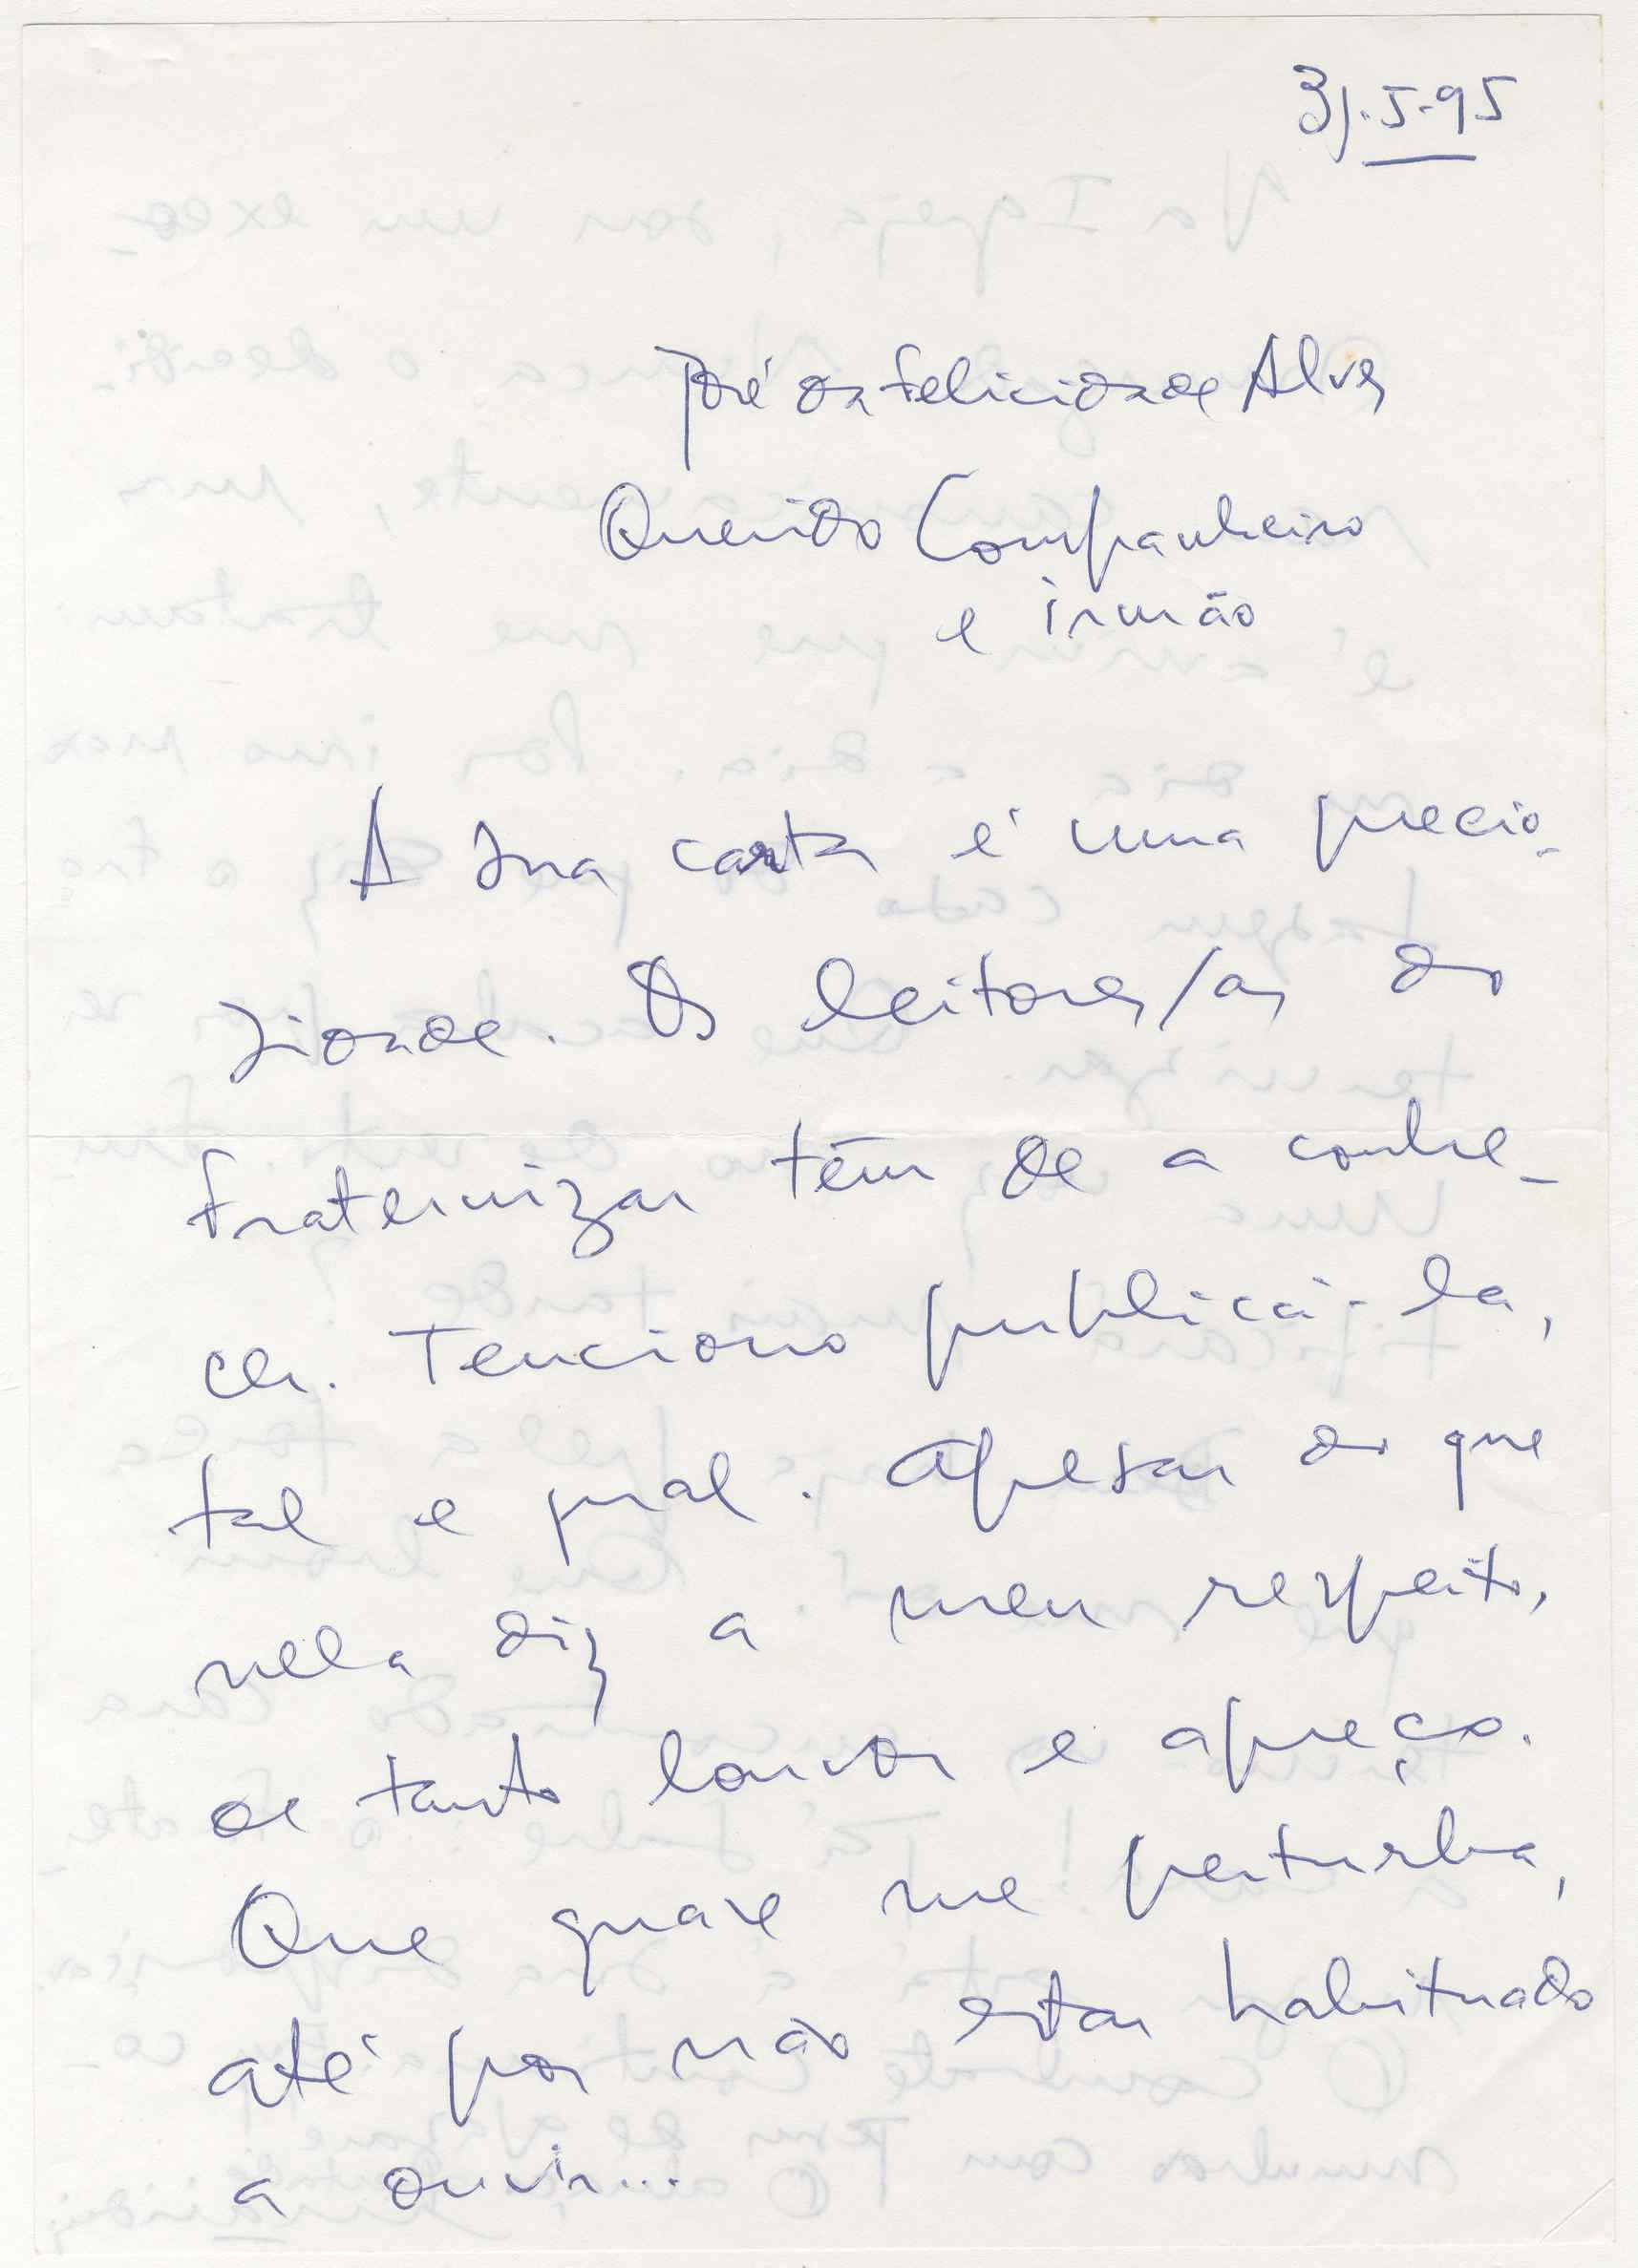 31.5.95
José da Felicidade Alves
Querido Companheiro
e irmão
A sua carta é uma precio-
sidade. Os leitores/as do
Fraternizar têm de a conhe-
cer. Tenciono publicá-la,
tal e qual. Apesar do que
nela diz a meu respeito,
de tanto louvor e apreço.
Que quase me perturba,
até por não estar habituado
a ouvir...